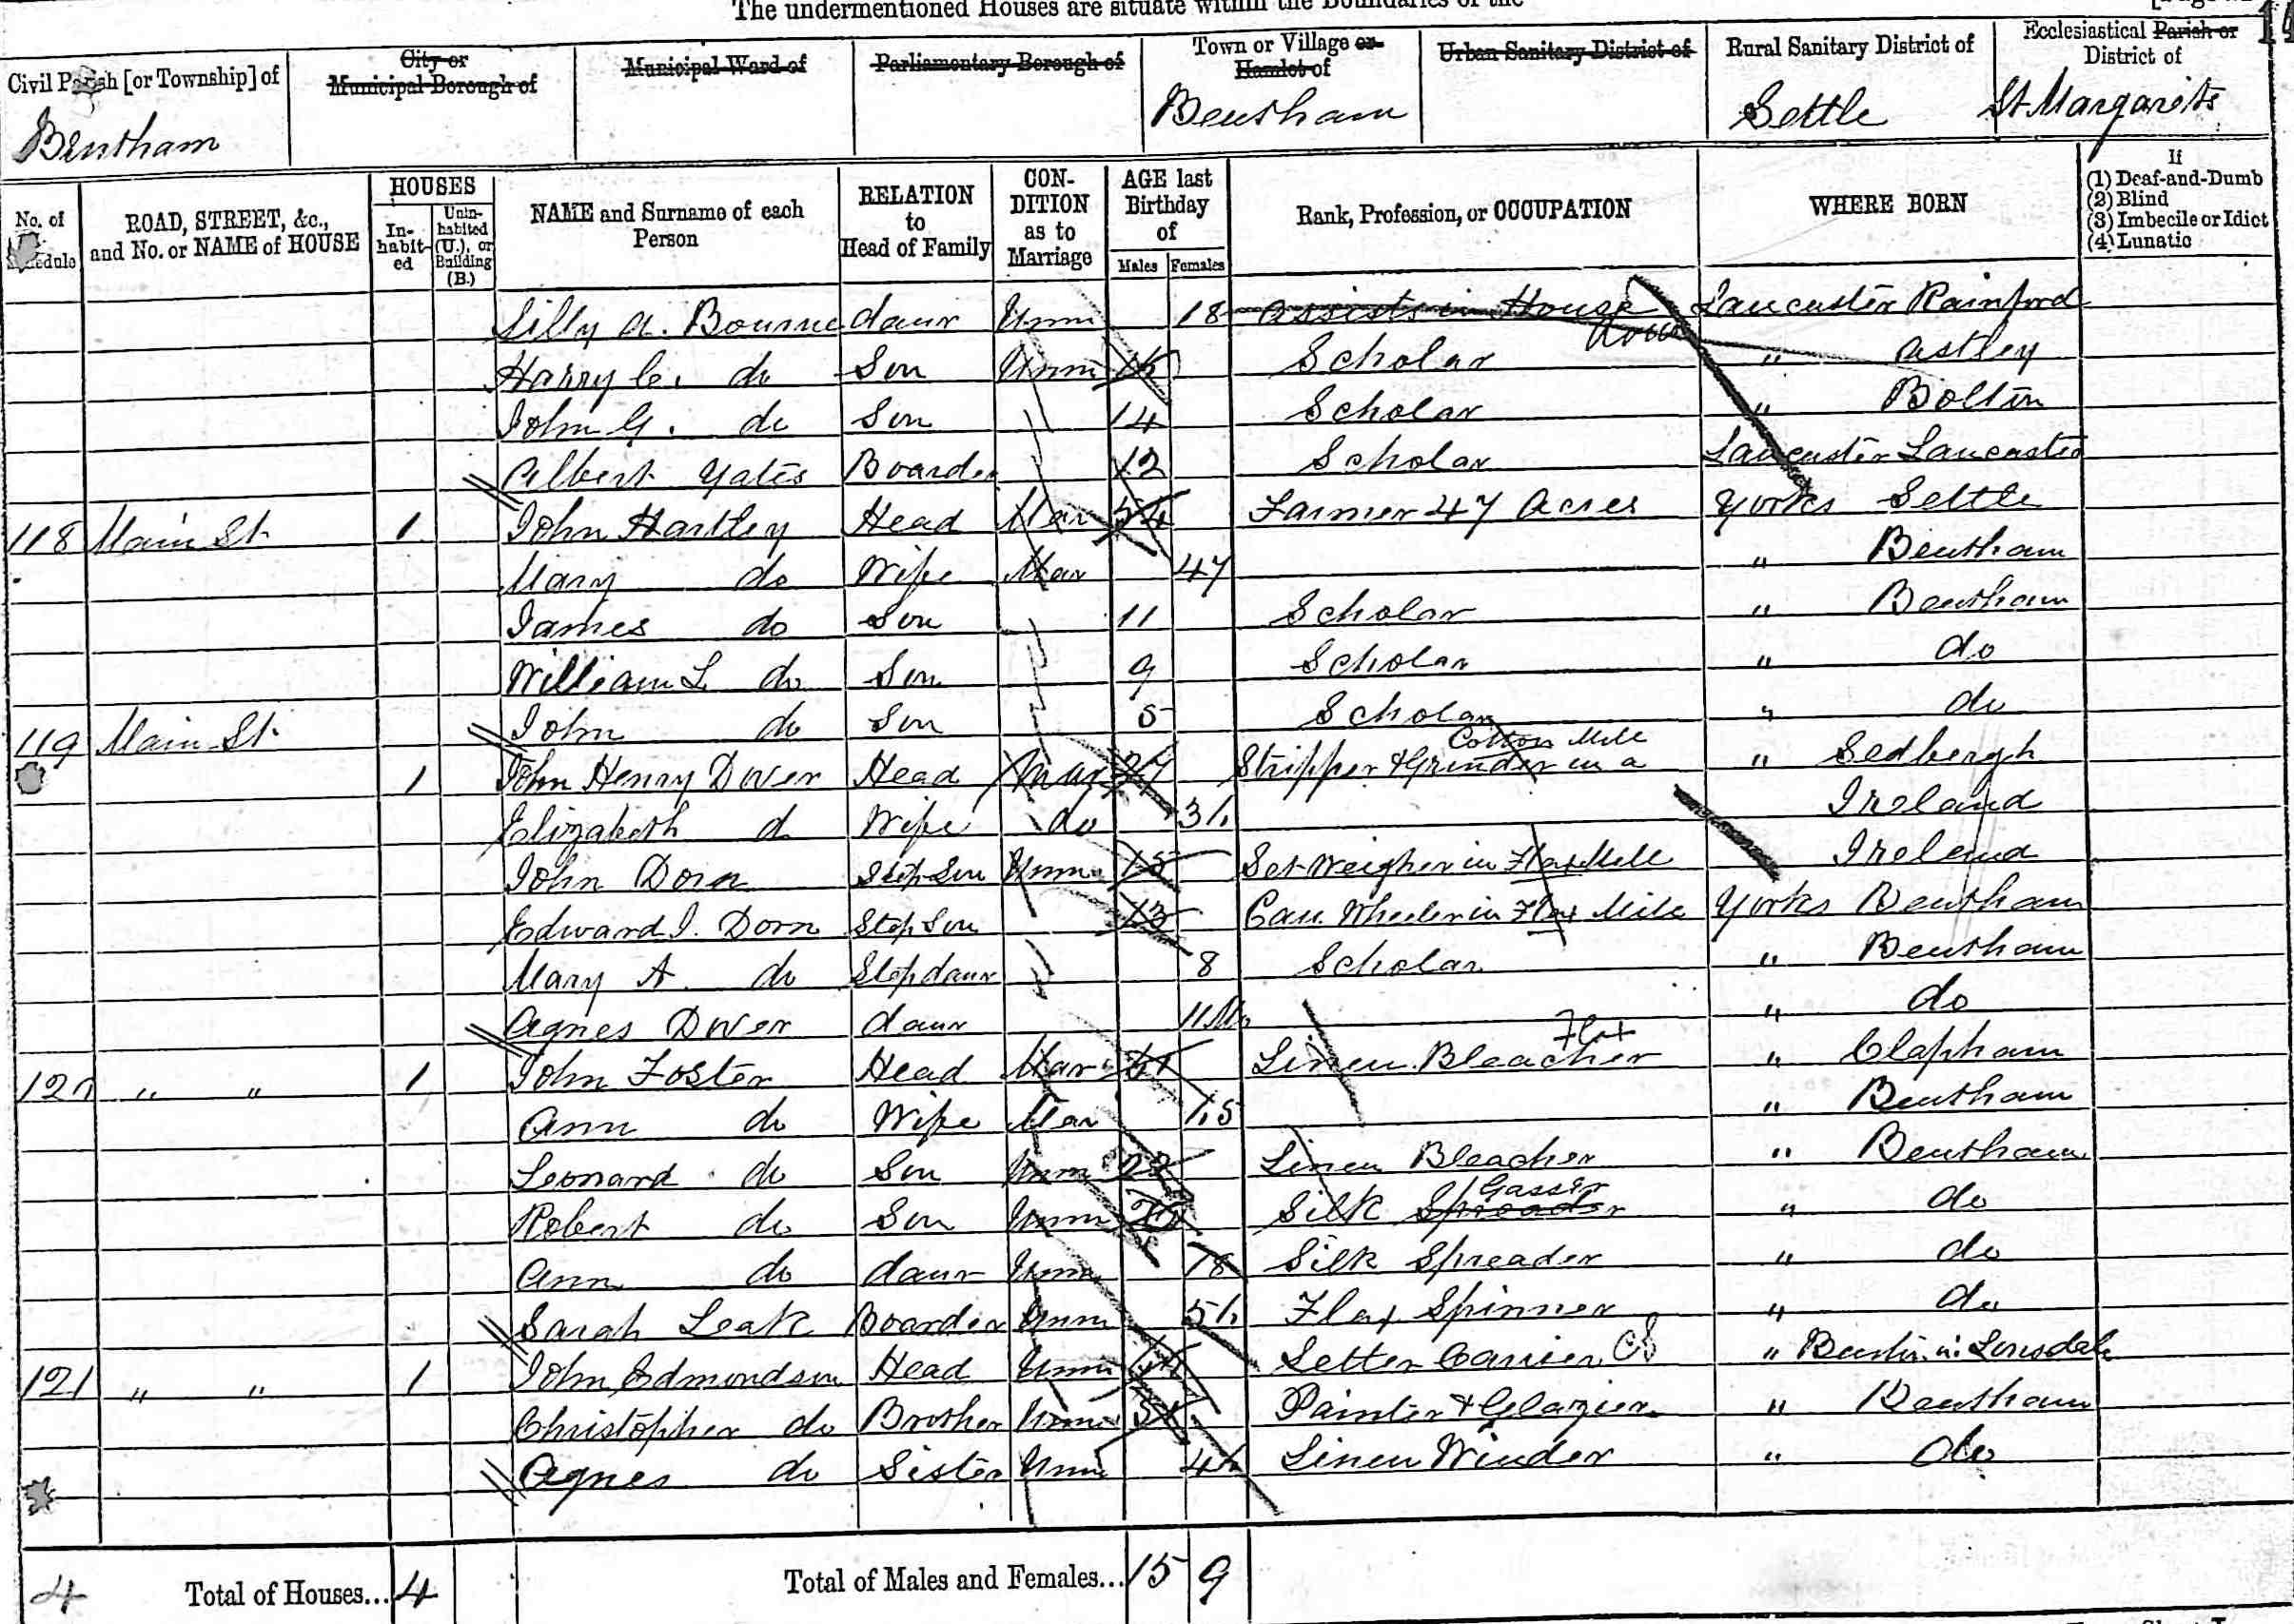 The undermentioned Houses are situate within the Boundaries of the
Civil Parish [or Township] of Bentham
City or Municipal Borough of
Municipal Ward of
Parliamentary Borough of
Town or Village or Hamlet of Bentham
Urban Sanitary District of
Rural Sanitary District of Settle
Ecclesiastical Parish or District of St. Margarets
No. of Schedule
ROAD, STREET, &c., and No. or NAME of HOUSE
HOUSES
In-habit-ed
Unin-habited (U.), or Building (B.)
NAME and Surname of each Person
RELATION to Head of Family
CON-DITION as to Marriage
AGE last Birthday of
Males Females
Rank, Profession, or OCCUPATION
WHERE BORN
If
(1) Deaf-and-Dumb
(2) Blind
(3) Imbecile or Idiot
(4) Lunatic
Lilly A. Bourne daur Unm 18 assists in House Lancaster Rainford
Harry C. do Son Unm Scholar " Astley
John G. do Son 14 Scholar " Bolton
Albert Yates Boarder 12 Scholar Lancaster Lancaster
118 Main St. 1 John Hartley Head Mar 54 Farmer 47 Acres Yorks Settle
Mary do Wife Mar 47 " Bentham
James do Son 11 Scholar " Bentham
William L do Son 9 Scholar " do
119 Main St. John do Son 5 Scholar " do
1 John Henry Dver Head Mar Stripper & Grinder in a Cotton Mill " Sedbergh
Elizabeth d Wife do 36 Ireland
John Dorn Step Son Unm 15 Set Weigher in Flax Mill Ireland
Edward J. Dorn Step Son 13 Can Wheeler in Flax Mill Yorks Bentham
Mary A do Step daur 8 Scholar " Bentham
Agnes Dver daur 11 Mo " do
120 " " 1 John Foster Head Mar 61 Linen Bleacher Flax " Clapham
Ann do Wife Mar 65 " Bentham
Leonard do Son Unm 22 Linen Bleacher " Bentham
Robert do Son Unm Silk Spreader Gasser " do
Ann do daur Unm 18 Silk Spreader " do
Sarah Leak Boarder Unm 56 Flax Spinner " do
121 " " 1 John Edmondson Head Unm Letter Carrier CS " Burton in Lonsdale
Christopher do Brother Unm Painter & Glazier " Bentham
Agnes do Sister Unm 46 Linen Winder " do
4 Total of Houses... 4 Total of Males and Females... 15 9